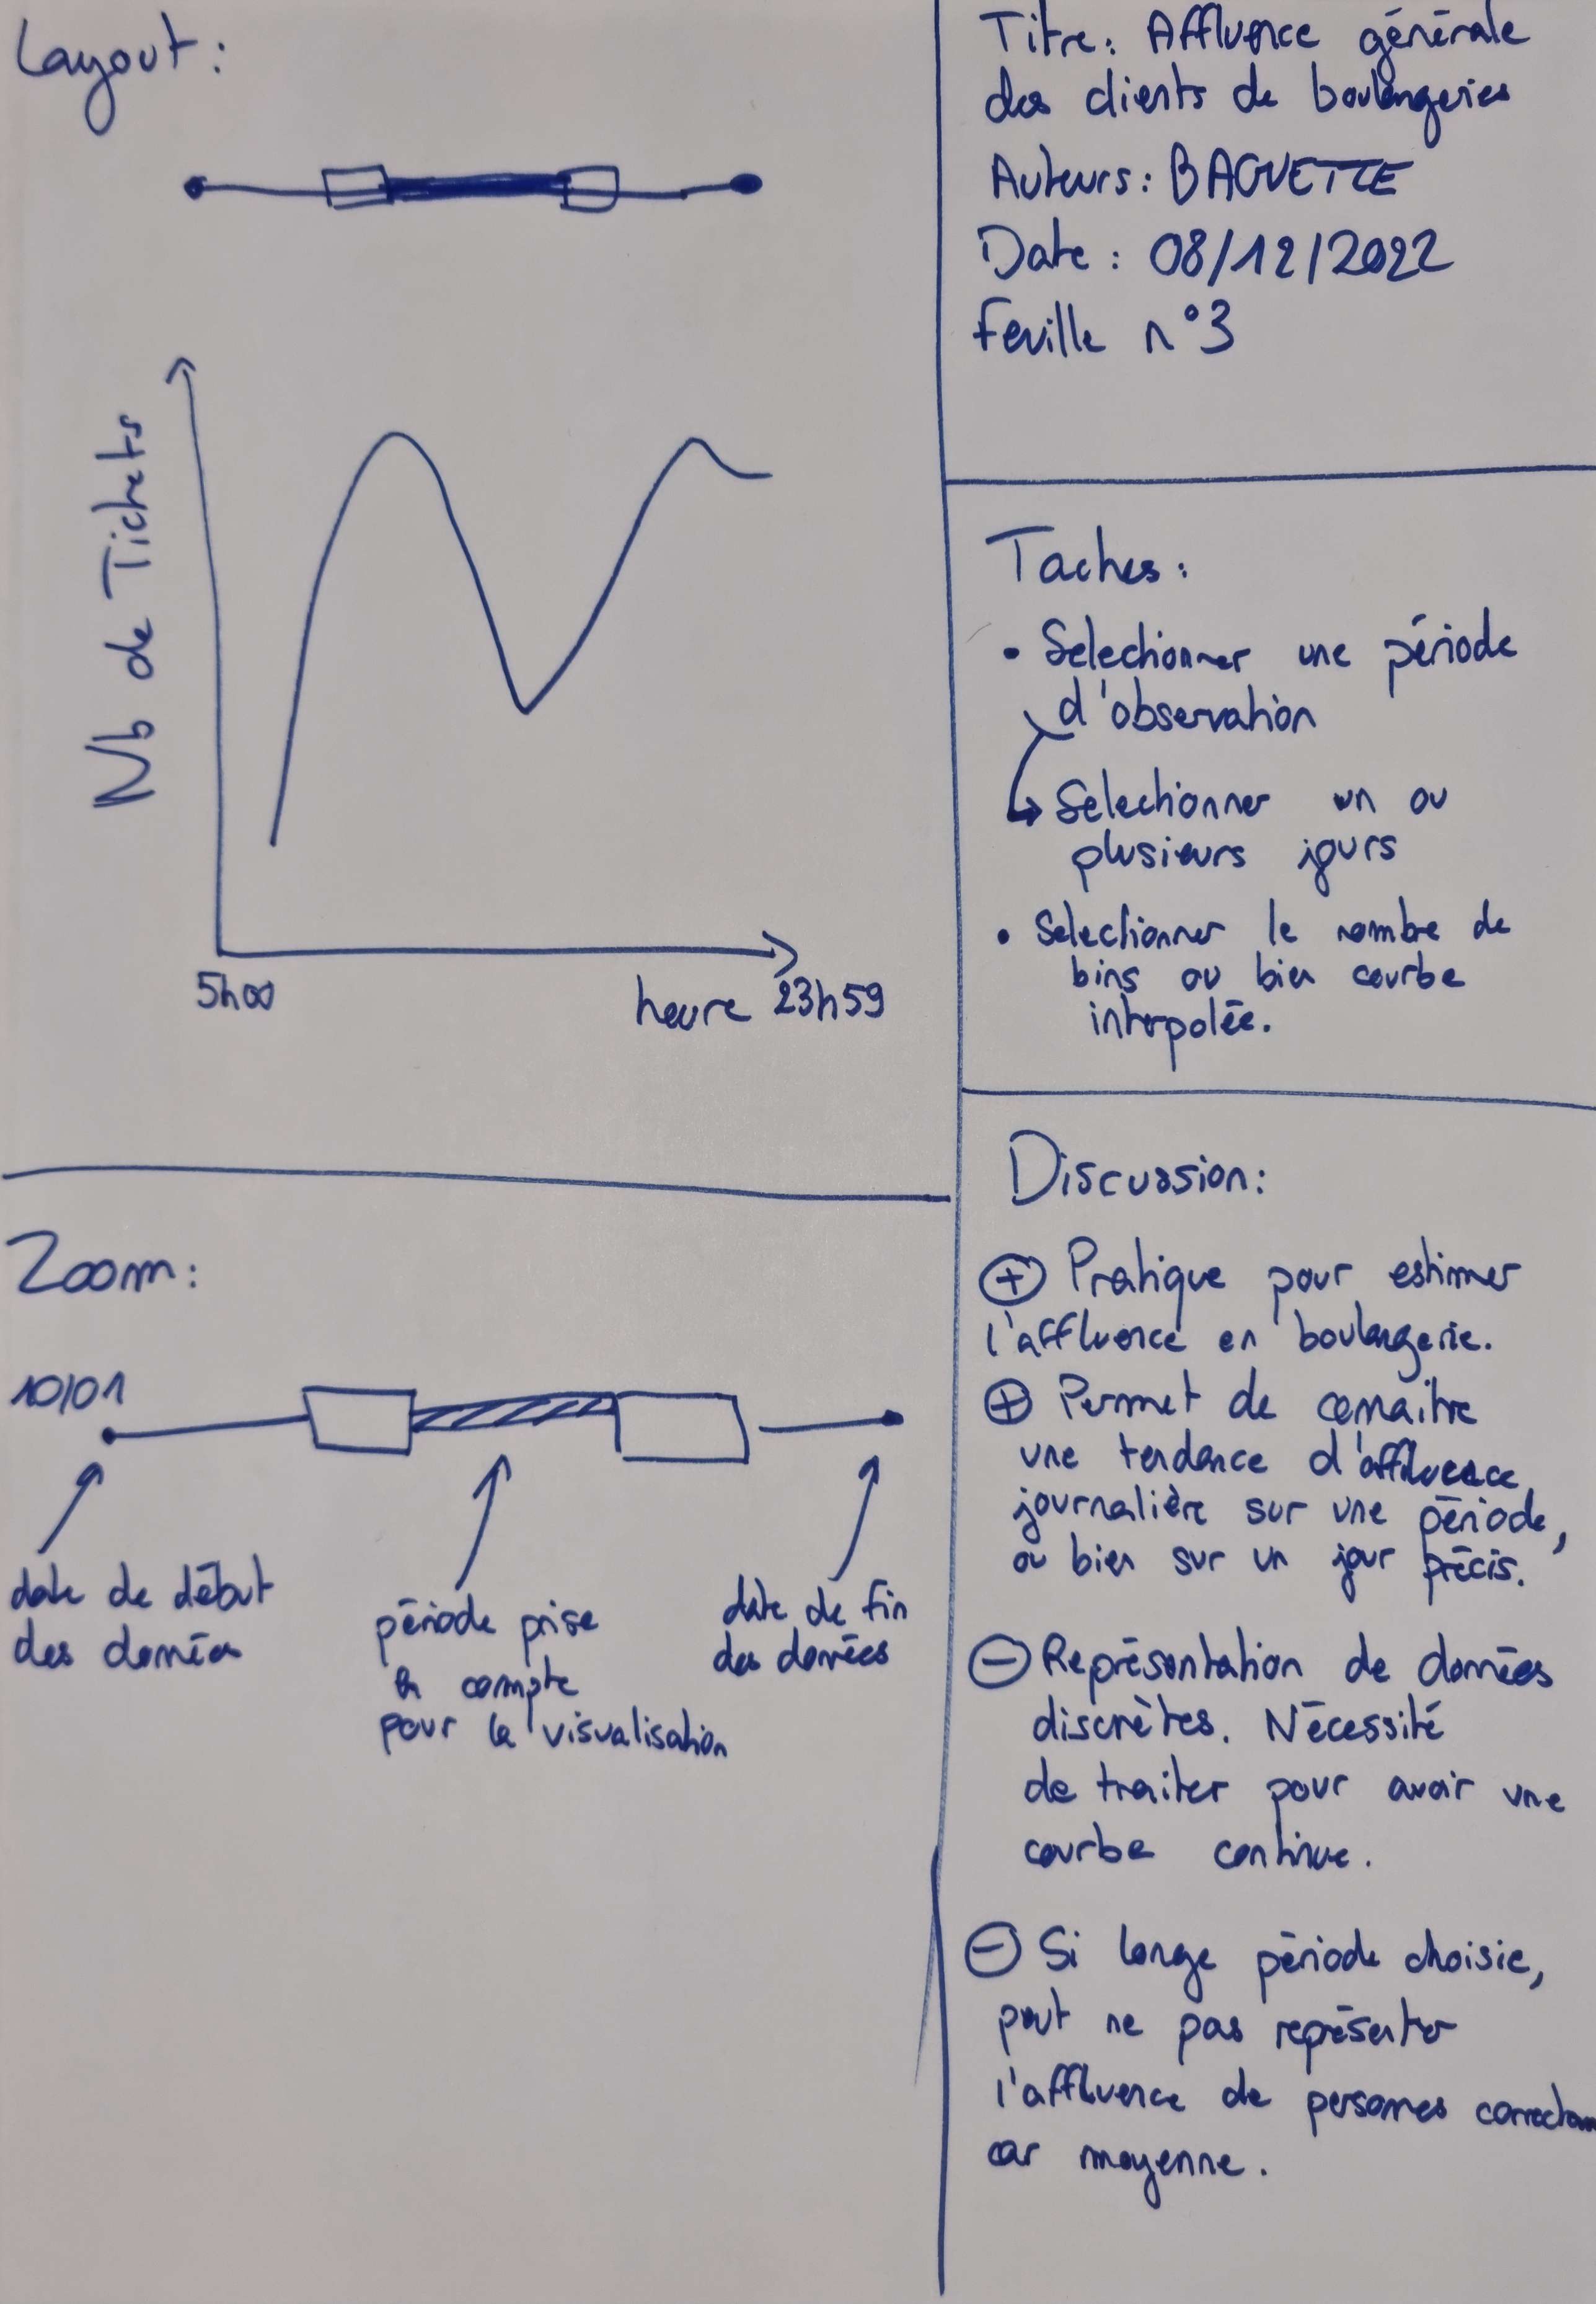 Layout :
Nb de Tickets
5h00
heure 23h59
Zoom :
10/01
date de début
des données
période prise
en compte
pour la visualisation
date de fin
des données
Titre : Affluence générale
des clients de boulangeries
Auteurs : BAGUETTE
Date : 08/12/2022
Feuille n°3
Taches :
• Selectionner une période
d'observation
Selectionner un ou
plusieurs jours
• Selectionner le nombre de
bins ou bien courbe
interpolée.
Discussion :
+ Pratique pour estimer
l'affluence en boulangerie.
+ Permet de connaitre
une tendance d'affluence
journalière sur une période,
ou bien sur un jour précis.
- Représentation de données
discrètes. Nécessité
de traiter pour avoir une
courbe continue.
- Si longe période choisie,
peut ne pas représenter
l'affluence de personnes
car moyenne.